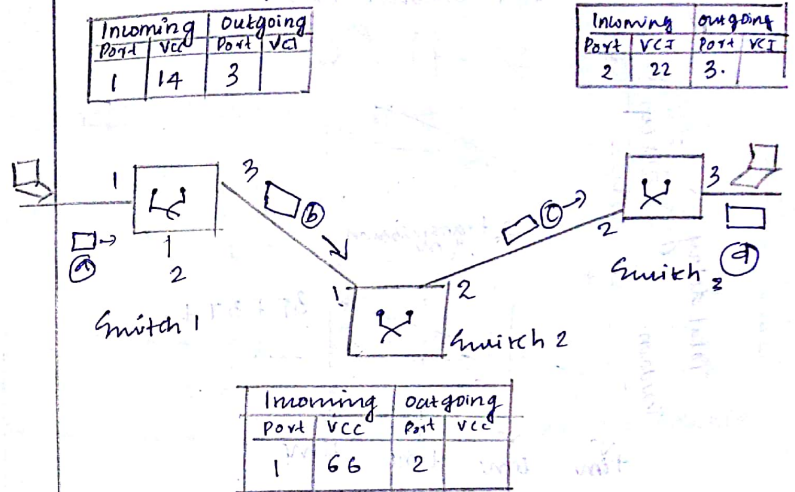 Incoming outgoing
Port VCC Port VCI
1 14 3
Incoming outgoing
Port VCI Port VCI
2 22 3.
1
3
b
c
3
a
1
2
2
d
Switch 3
Switch 1
1
2
Switch 2
Incoming outgoing
Port VCC Port VCC
1 66 2